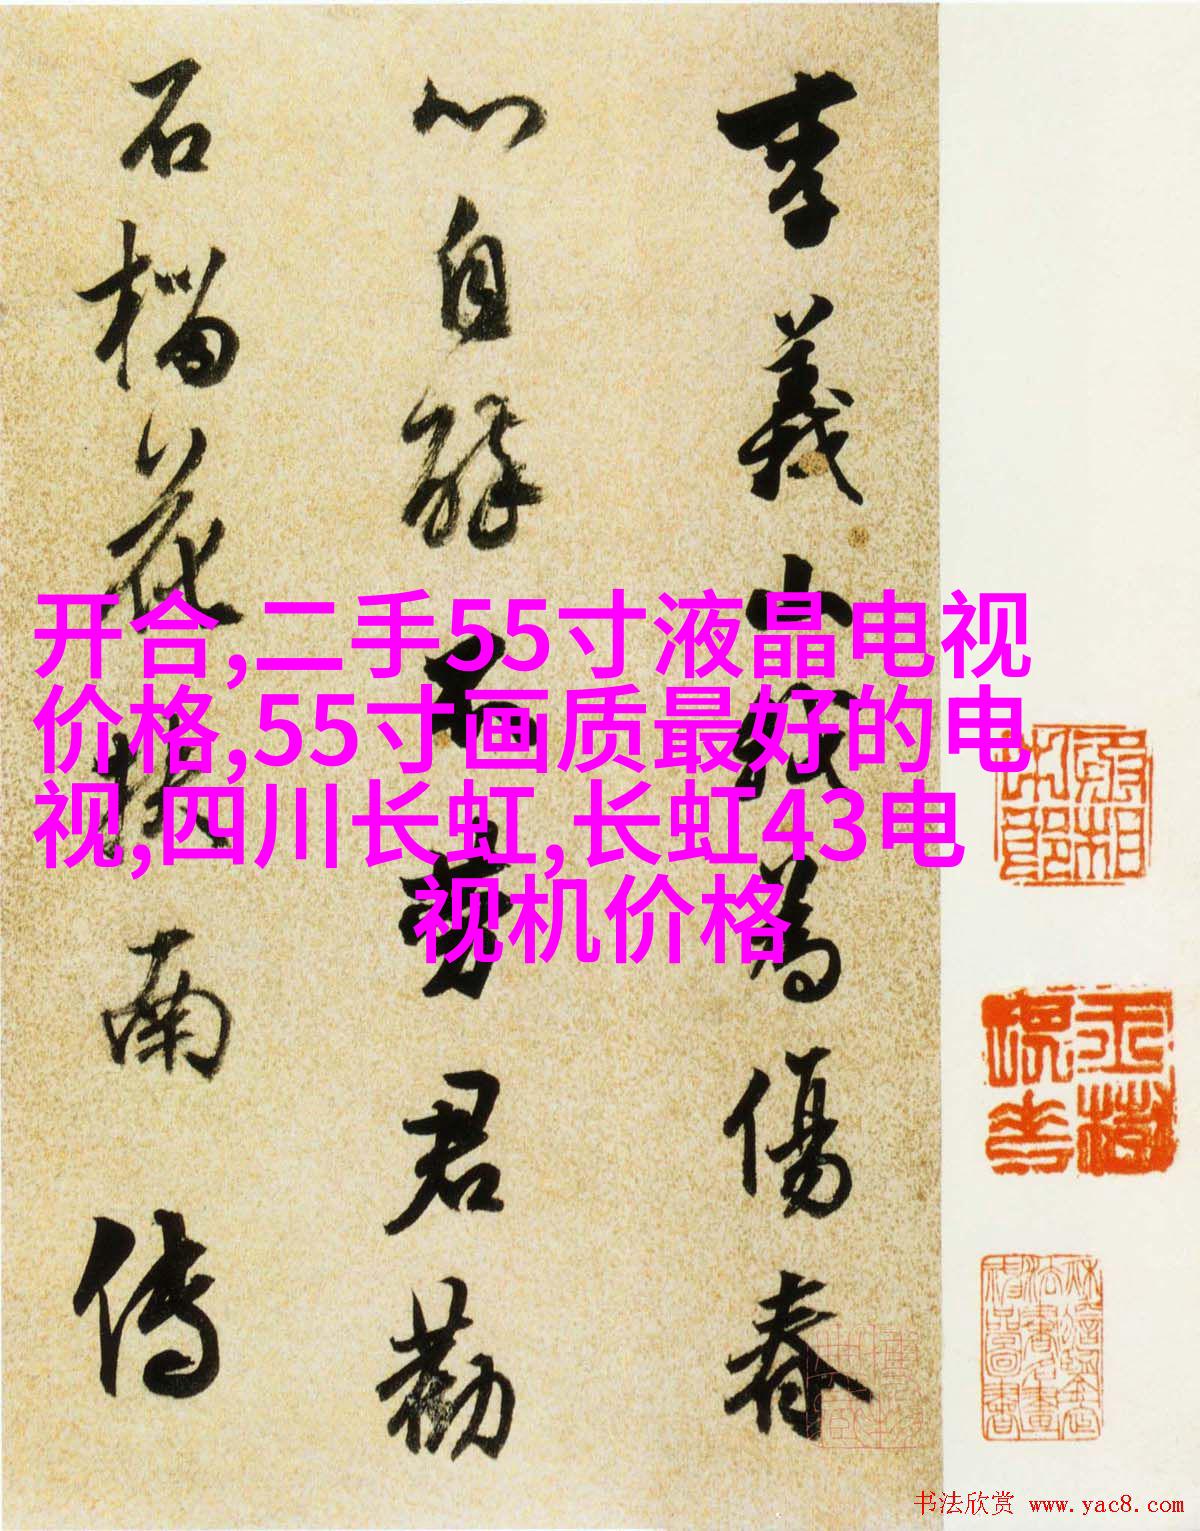 李義山我為傷春
心自醉不勞君勸
石榴花扶南傳
开合,二手55寸液晶电视
价格,55寸画质最好的电
视,四川长虹,长虹43电
视机价格
书法欣赏 www.yac8.com